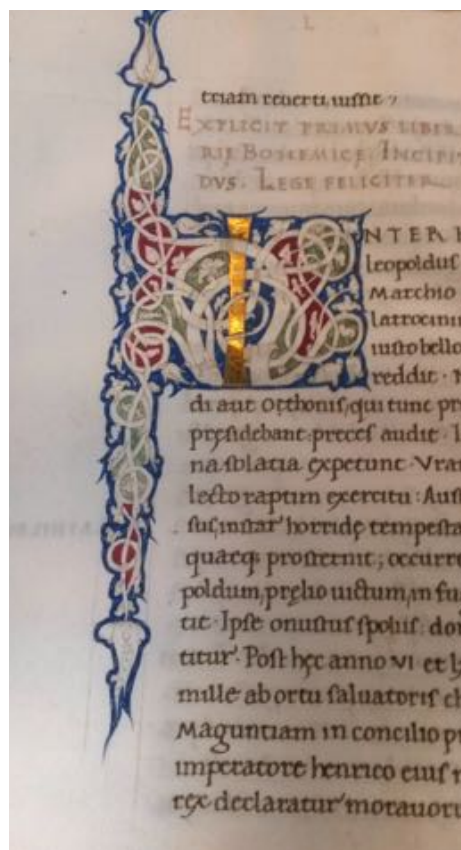 etiam reverti iussit ;
EXPLICIT PRIMVS LIBER
RIȨ BOHEMICE. INCIPIT
DVS. LEGE FELICITER
INTER
leopolduſ
Marchio
latrocini
iuſto bello
reddit ·
di aut Otthoniſ, qui tunc pr
preſidebant preceſ audit ·
na ſolatia expetunt · Vra
lecto raptim exercitu : Auſ
ſuſ, inſtar horridę tempeſta
quaeq; proſternit ; occurre
poldum, pręlio uictum, in fu
tit · Ipſe onuſtuſ ſpoliiſ · do
titur · Poſt hęc anno VI et
mille ab ortu ſaluatoriſ ch
Maguntiam in concilio p
imperatore henrico eiuſ
rex declaratur morauoru